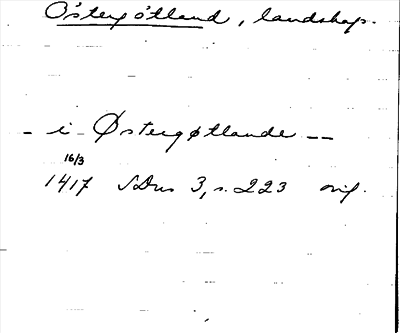 Östergötland, landskap.
– i Østergøtlande – –
16/3
1417 SDns 3, s. 223 orig.